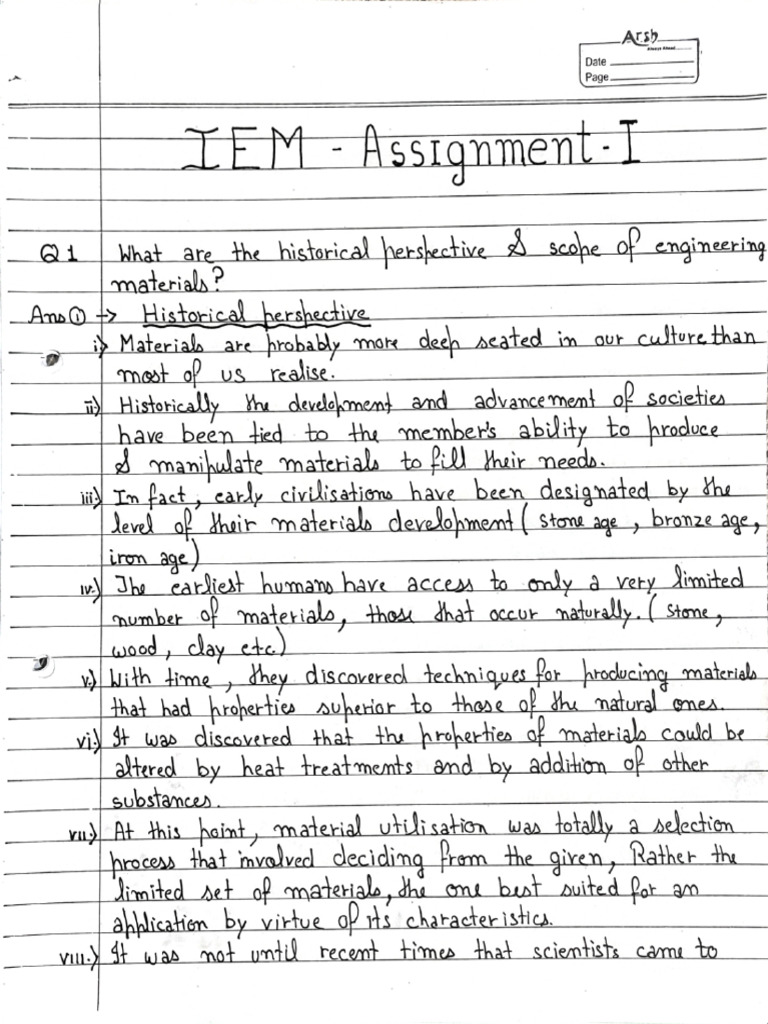 Arsh
Always Ahead
Date
Page
IEM - Assignment - I
Q1 What are the historical perspective & scope of engineering
materials?
Ans ① → Historical perspective
i) Materials are probably more deep seated in our culture than
most of us realise.
ii) Historically the development and advancement of societies
have been tied to the member's ability to produce
& manipulate materials to fill their needs.
iii) In fact, early civilisations have been designated by the
level of their materials development (stone age, bronze age,
iron age)
iv.) The earliest humans have access to only a very limited
number of materials, those that occur naturally. (stone,
wood, clay etc.)
v.) With time, they discovered techniques for producing materials
that had properties superior to those of the natural ones.
vi.) It was discovered that the properties of materials could be
altered by heat treatments and by addition of other
substances.
vii.) At this point, material utilisation was totally a selection
process that involved deciding from the given, Rather the
limited set of materials, the one best suited for an
application by virtue of its characteristics.
viii.) It was not until recent times that scientists came to